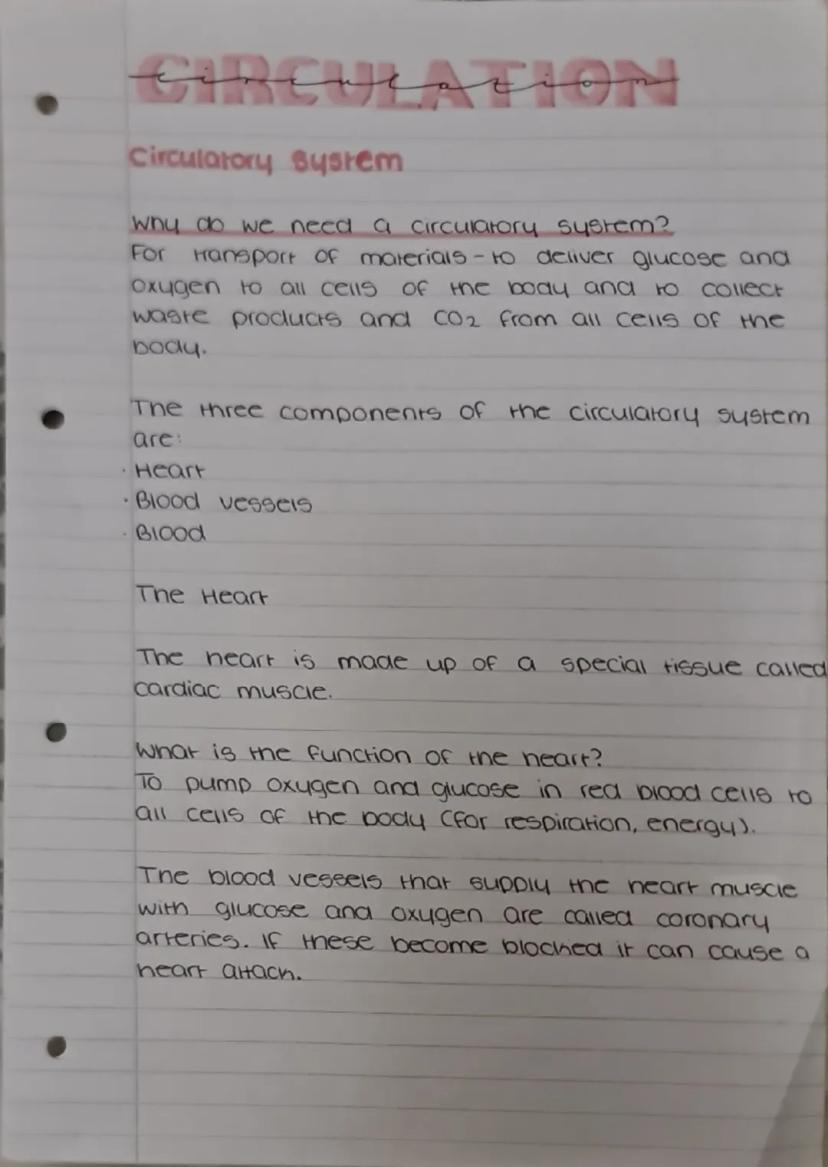 CIRCULATION
circulation
Circulatory System
Why do we need a circulatory system?
For transport of materials - to deliver glucose and
oxygen to all cells of the body and to collect
waste products and CO2 from all cells of the
body.
The three components of the circulatory system
are:
· Heart
· Blood vessels
· Blood
The Heart
The heart is made up of a special tissue called
cardiac muscle.
What is the function of the heart?
To pump oxygen and glucose in red blood cells to
all cells of the body (for respiration, energy).
The blood vessels that supply the heart muscle
with glucose and oxygen are called coronary
arteries. If these become blocked it can cause a
heart attack.